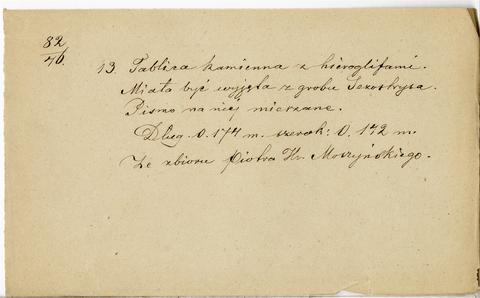 82/76
13. Tablica kamienna z hieroglifami.
Miała być wyjęta z grobu Sezostrysa.
Pismo na niej mieszane.
Dług. 0.174 m. szerok: 0.172 m.
Ze zbioru Piotra Hr. Moszyńskiego.